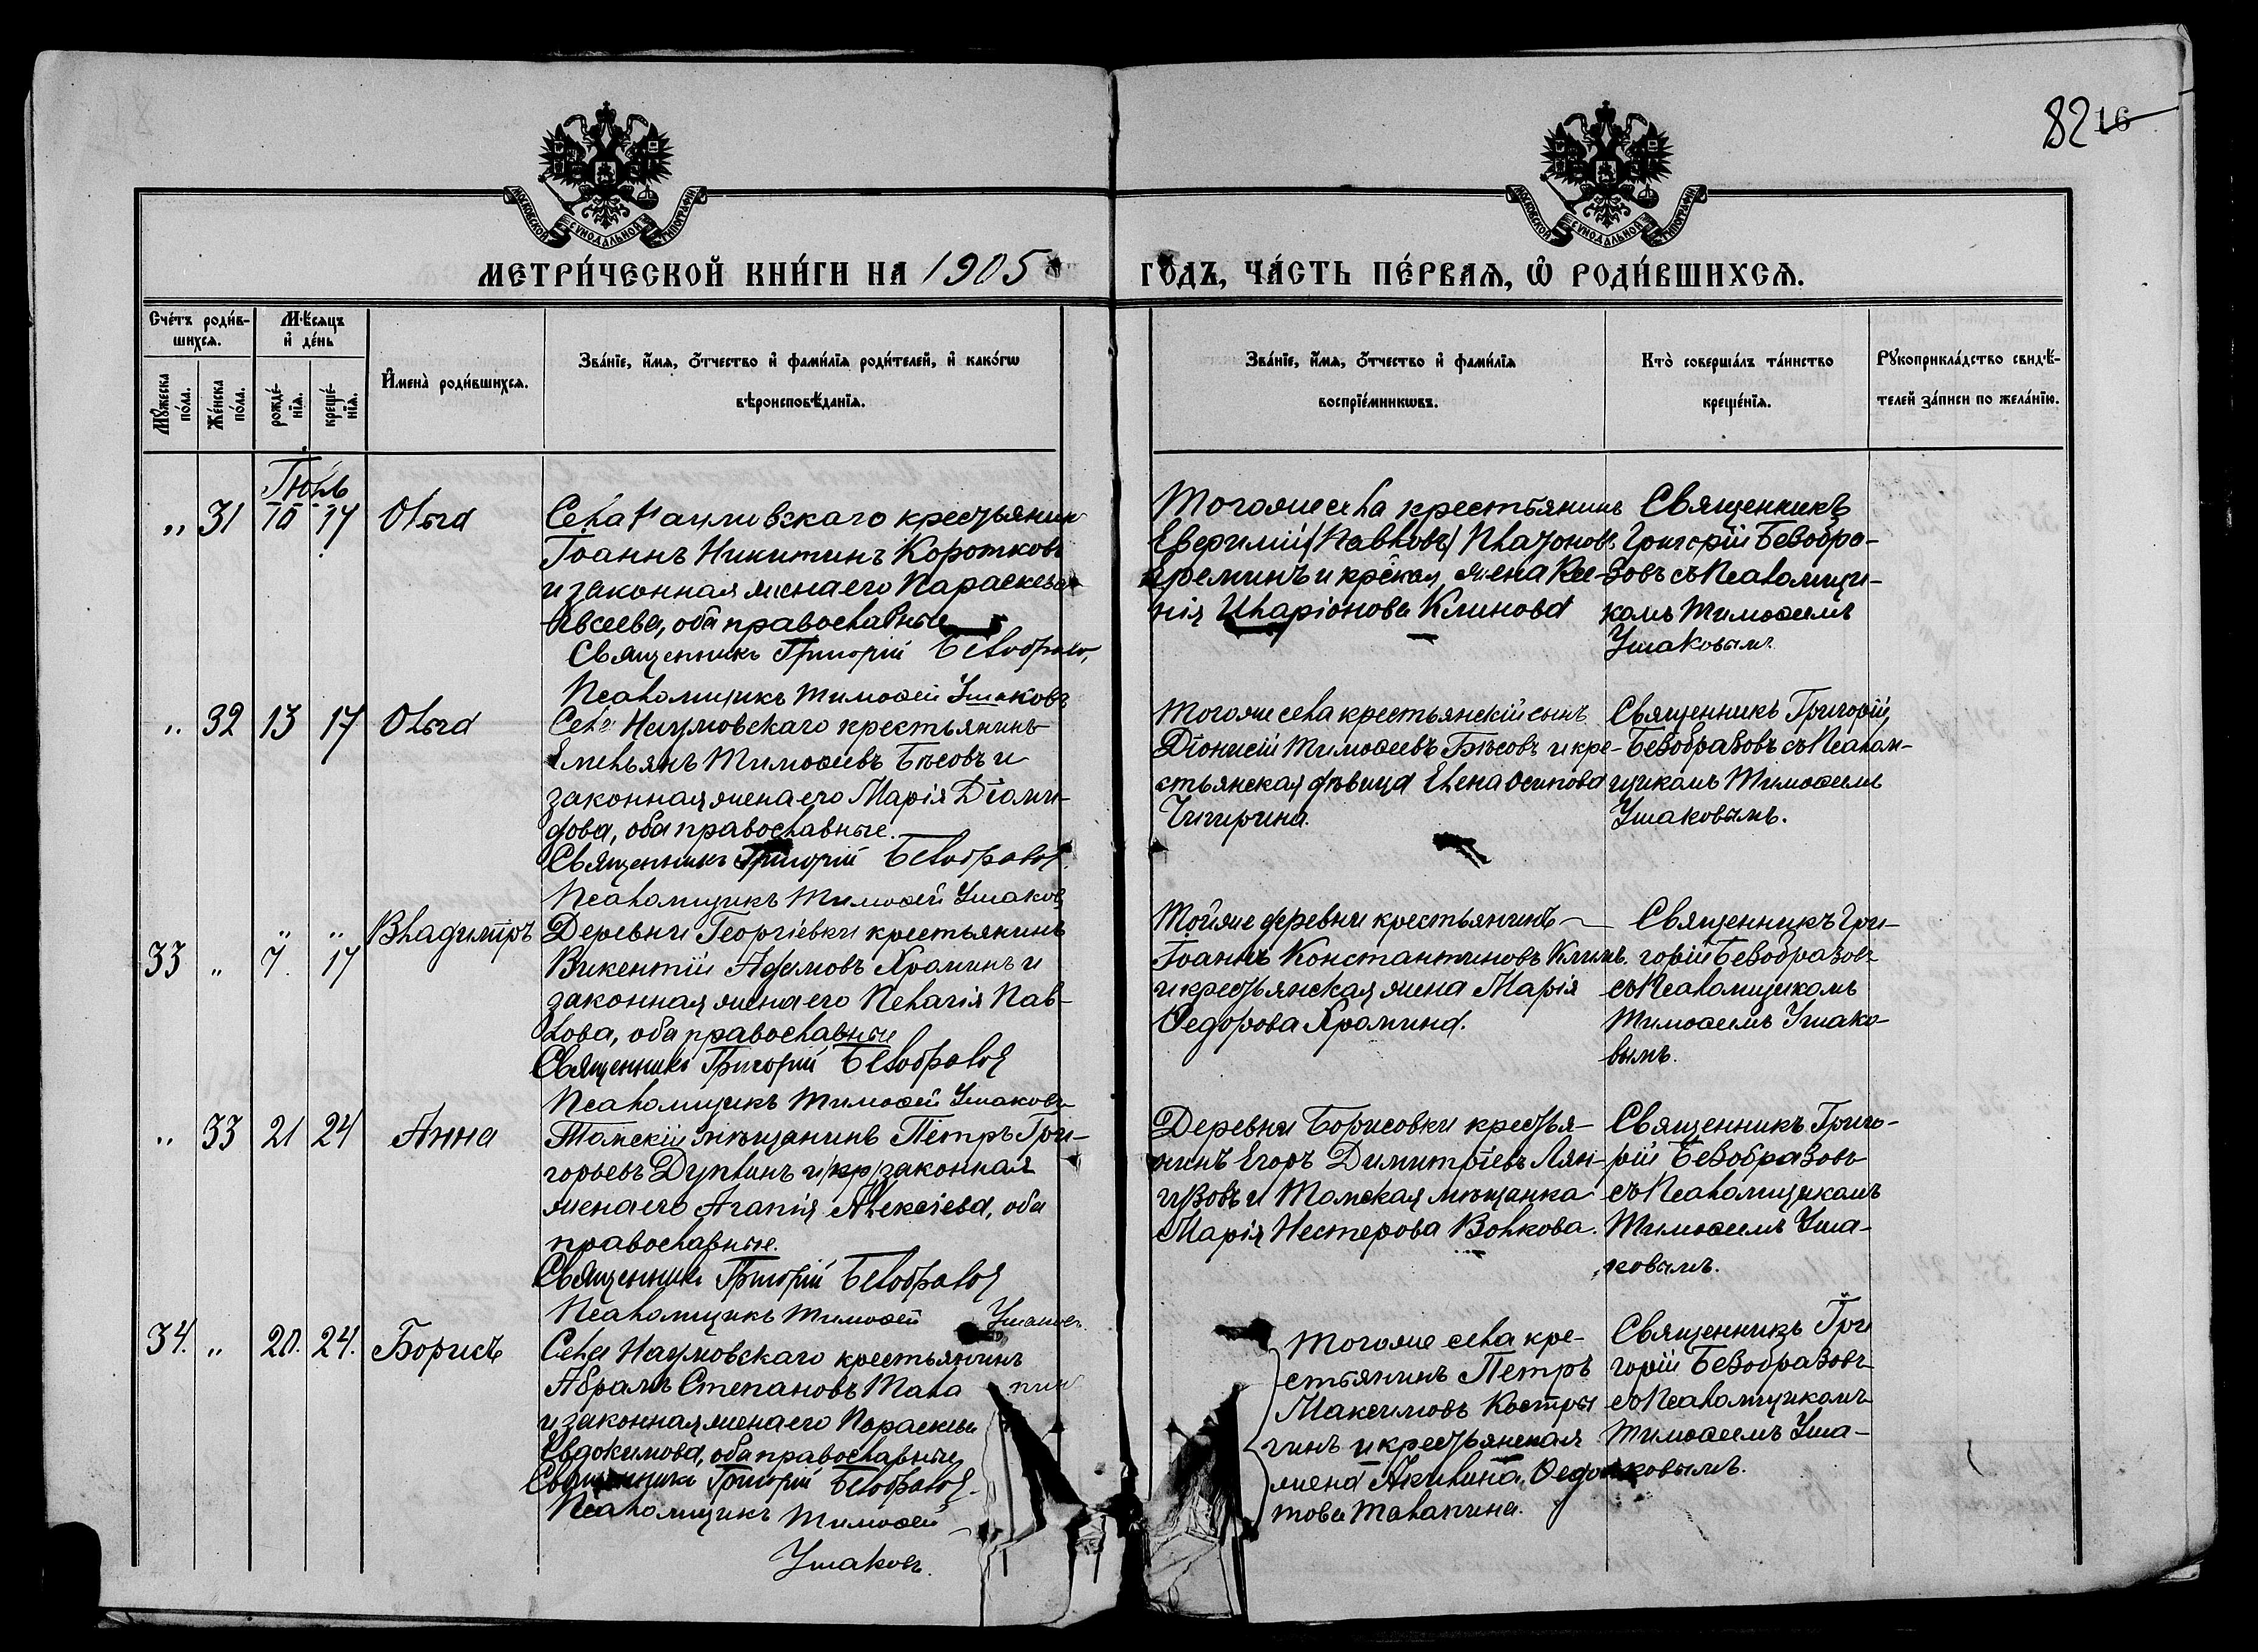 82 16
МОСКОВСКОЙ СѴНОДАЛЬНОЙ ТИПОГРАФІИ
МОСКОВСКОЙ СѴНОДАЛЬНОЙ ТИПОГРАФІИ
МЕТРИ́ЧЕСКОЙ КНИ́ГИ НА 1905
ГО́ДЪ, ЧА́СТЬ ПЕ́РВАѦ, Ѿ РОДИ́ВШИХСѦ.
Сче́тъ роди́в-
шихсѧ.
Мꙋ́жеска
по́ла.
Же́нска
по́ла.
Мѣ́сяцъ
и҆ де́нь
рожде́-
нїѧ.
креще́-
нїѧ.
И҆мена̀ роди́вшихсѧ.
Зва́нїе, и҆́мѧ, ѻ҆́тчество и҆ фами́лїѧ роди́телей, и҆ како́гѡ
вѣроисповѣ́данїѧ.
Зва́нїе, и҆́мѧ, ѻ҆́тчество и҆ фами́лїѧ
воспрїе́мникѡвъ.
Кто̀ соверша́лъ та́инство
креще́нїѧ.
Рꙋкоприкла́дство свидѣ́-
телей за́писи по жела́нїю.
Іюль
„ 31 10 17 Ольга
Села Наумовскаго крестьянин
Іоаннъ Никитинъ Коротковъ
и законная жена его Параскева
Авсеева, оба православные
Священникъ Григорій Безобразо,
Псаломщикъ Тимоѳей Ушаковъ
Тогоже села крестьянинъ
Евѳимій (Павловъ) Платонов.
Ереминъ и крестьян. жена Ксе-
нія Иларіонова Климова
Священникъ
Григорій Безобра-
зовъ съ Псаломщи-
комъ Тимоѳеемъ
Ушаковым.
„ 32 13 17 Ольга
Села Наумовскаго крестьянинъ
Емельянъ Тимоѳеевъ Бѣсовъ и
законная жена его Марія Діоми-
дова, оба православные.
Священникъ Григорій Безобразов.
Псаломщикъ Тимоѳей Ушаковъ
Тогоже села крестьянскій сынъ
Діонисій Тимоѳеевъ Бѣсовъ и кре-
стьянская дѣвица Елена Осипова
Чигирина.
Священникъ Григорій
Безобразовъ съ Псалом-
щикомъ Тимоѳеемъ
Ушаковымъ.
33 „ 7. 17 Владиміръ
Деревни Георгіевки крестьянинъ
Викентій Адамовъ Храминъ и
законная жена его Пелагія Пав-
лова, оба православные
Священникъ Григорій Безобразов
Псаломщикъ Тимоѳей Ушаковъ
Тойже деревни крестьянинъ
Іоаннъ Константиновъ Климъ.
и крестьянская жена Марія
Ѳедорова Храмина.
Священникъ Гри-
горій Безобразовъ
съ Псаломщикомъ
Тимоѳеемъ Ушако-
вымъ.
„ 33 21 24 Анна
Томскій мѣщанинъ Петръ Гри-
горьевъ Дуплинъ и (кр) законная
жена его Агапія Алексіева, оба
православные.
Священникъ Григорій Безобразов
Псаломщикъ Тимоѳей Ушаковъ
Деревни Борисовки крестья-
нинъ Егоръ Димитріевъ Лян-
гузовъ и Томская мѣщанка
Марія Нестерова Волкова.
Священникъ Григо-
рій Безобразовъ
съ Псаломщикомъ
Тимоѳеемъ Уша-
ковымъ.
34. „ 20. 24. Борисъ
Села Наумовскаго крестьянинъ
Абрамъ Степановъ Тала пин
и законная жена его Параскева
Евдокимова, оба православные
Священникъ Григорій Безобразов.
Псаломщикъ Тимоѳей
Ушаковъ.
Тогоже села кре-
стьянинъ Петръ
Максимовъ Костры
гинъ и крестьянская
жена Акилина Ѳедо
това Талапина.
Священникъ Гри
горій Безобразовъ
съ Псаломщикомъ
Тимоѳеемъ Уша-
ковымъ.